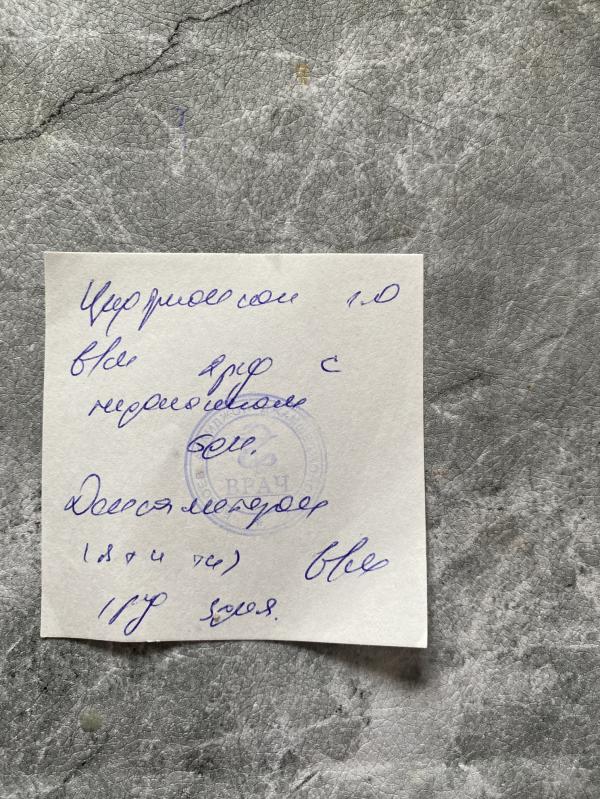 Цефтриаксон 1.0
в/м 2 р/д с
лидокаином
6 дн.
Дексаметазон
в/м
1 р/д 3 дня.
ВРАЧ